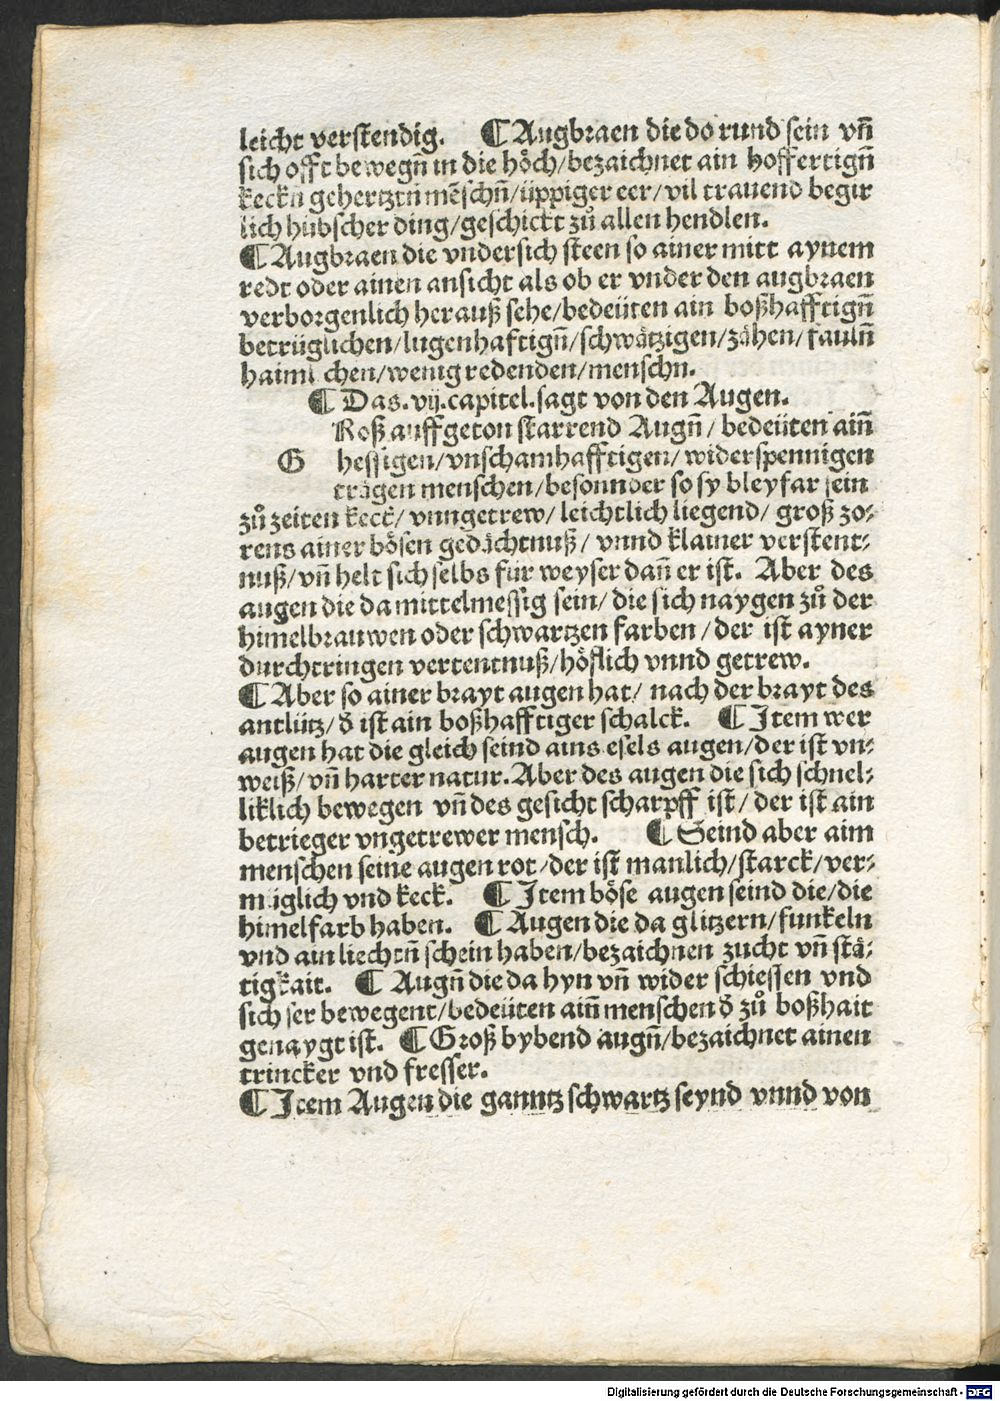 leicht verstendig. ¶ Augbraen die do rund sein vñ
sich offt bewegñ in die hoͤch/bezaichnet ain hoffertigñ
keckñ gehertztñ mẽschñ/üppiger eer/vil trauend begir
lich hübscher ding/geschickt zuͦ allen hendlen.
¶ Augbraen die vndersich steen so ainer mitt aynem
redt oder ainen ansicht als ob er vnder den augbraen
verborgenlich herauß sehe/bedeüten ain boßhafftigñ
betrüglichen/lugenhaftigñ/schwaͤtzigen/zaͤhen/faulñ
haimlichen/wenig redenden/menschn.
¶ Das.vij.capitel.sagt von den Augen.
Roß auffgeton starrend Augñ/ bedeüten aiñ
G hessigen/vnschamhafftigen/widerspennigen
traͤgen menschen/besonnder so sy bleyfar sein
zuͦ zeiten keck/ vnngetrew/ leichtlich liegend/ groß zo⸗
rens ainer boͤsen gedaͤchtnuß/ vnnd klainer verstent⸗
nuß/vñ helt sich selbs für weyser dañ er ist. Aber des
augen die da mittelmessig sein/ die sich naygen zuͦ der
himelbrauwen oder schwartzen farben/der ist ayner
durchtringen vertentnuß/hoͤflich vnnd getrew.
¶ Aber so ainer brayt augen hat/ nach der brayt des
antlütz/ð ist ain boßhafftiger schalck. ¶ Item wer
augen hat die gleich seind ains esels augen/der ist vn⸗
weiß/vñ harter natur. Aber des augen die sich schnel⸗
liklich bewegen vñ des gesicht scharpff ist/ der ist ain
betrieger vngetrewer mensch. ¶ Seind aber aim
menschen seine augen rot/der ist manlich/starck/ver⸗
müglich vnd keck. ¶ Item boͤse augen seind die/die
himelfarb haben. ¶ Augen die da glitzern/funkeln
vnd ain liechtñ schein haben/bezaichnen zucht vñ staͤ⸗
tigkait. ¶ Augñ die da hyn vñ wider schiessen vnd
sich ser bewegent/bedeüten aiñ menschen ð zuͦ boßhait
genaygt ist. ¶ Groß bybend augñ/bezaichnet ainen
trincker vnd fresser.
¶ Item Augen die ganntz schwartz seynd vnnd von
Digitalisierung gefördert durch die Deutsche Forschungsgemeinschaft - DFG